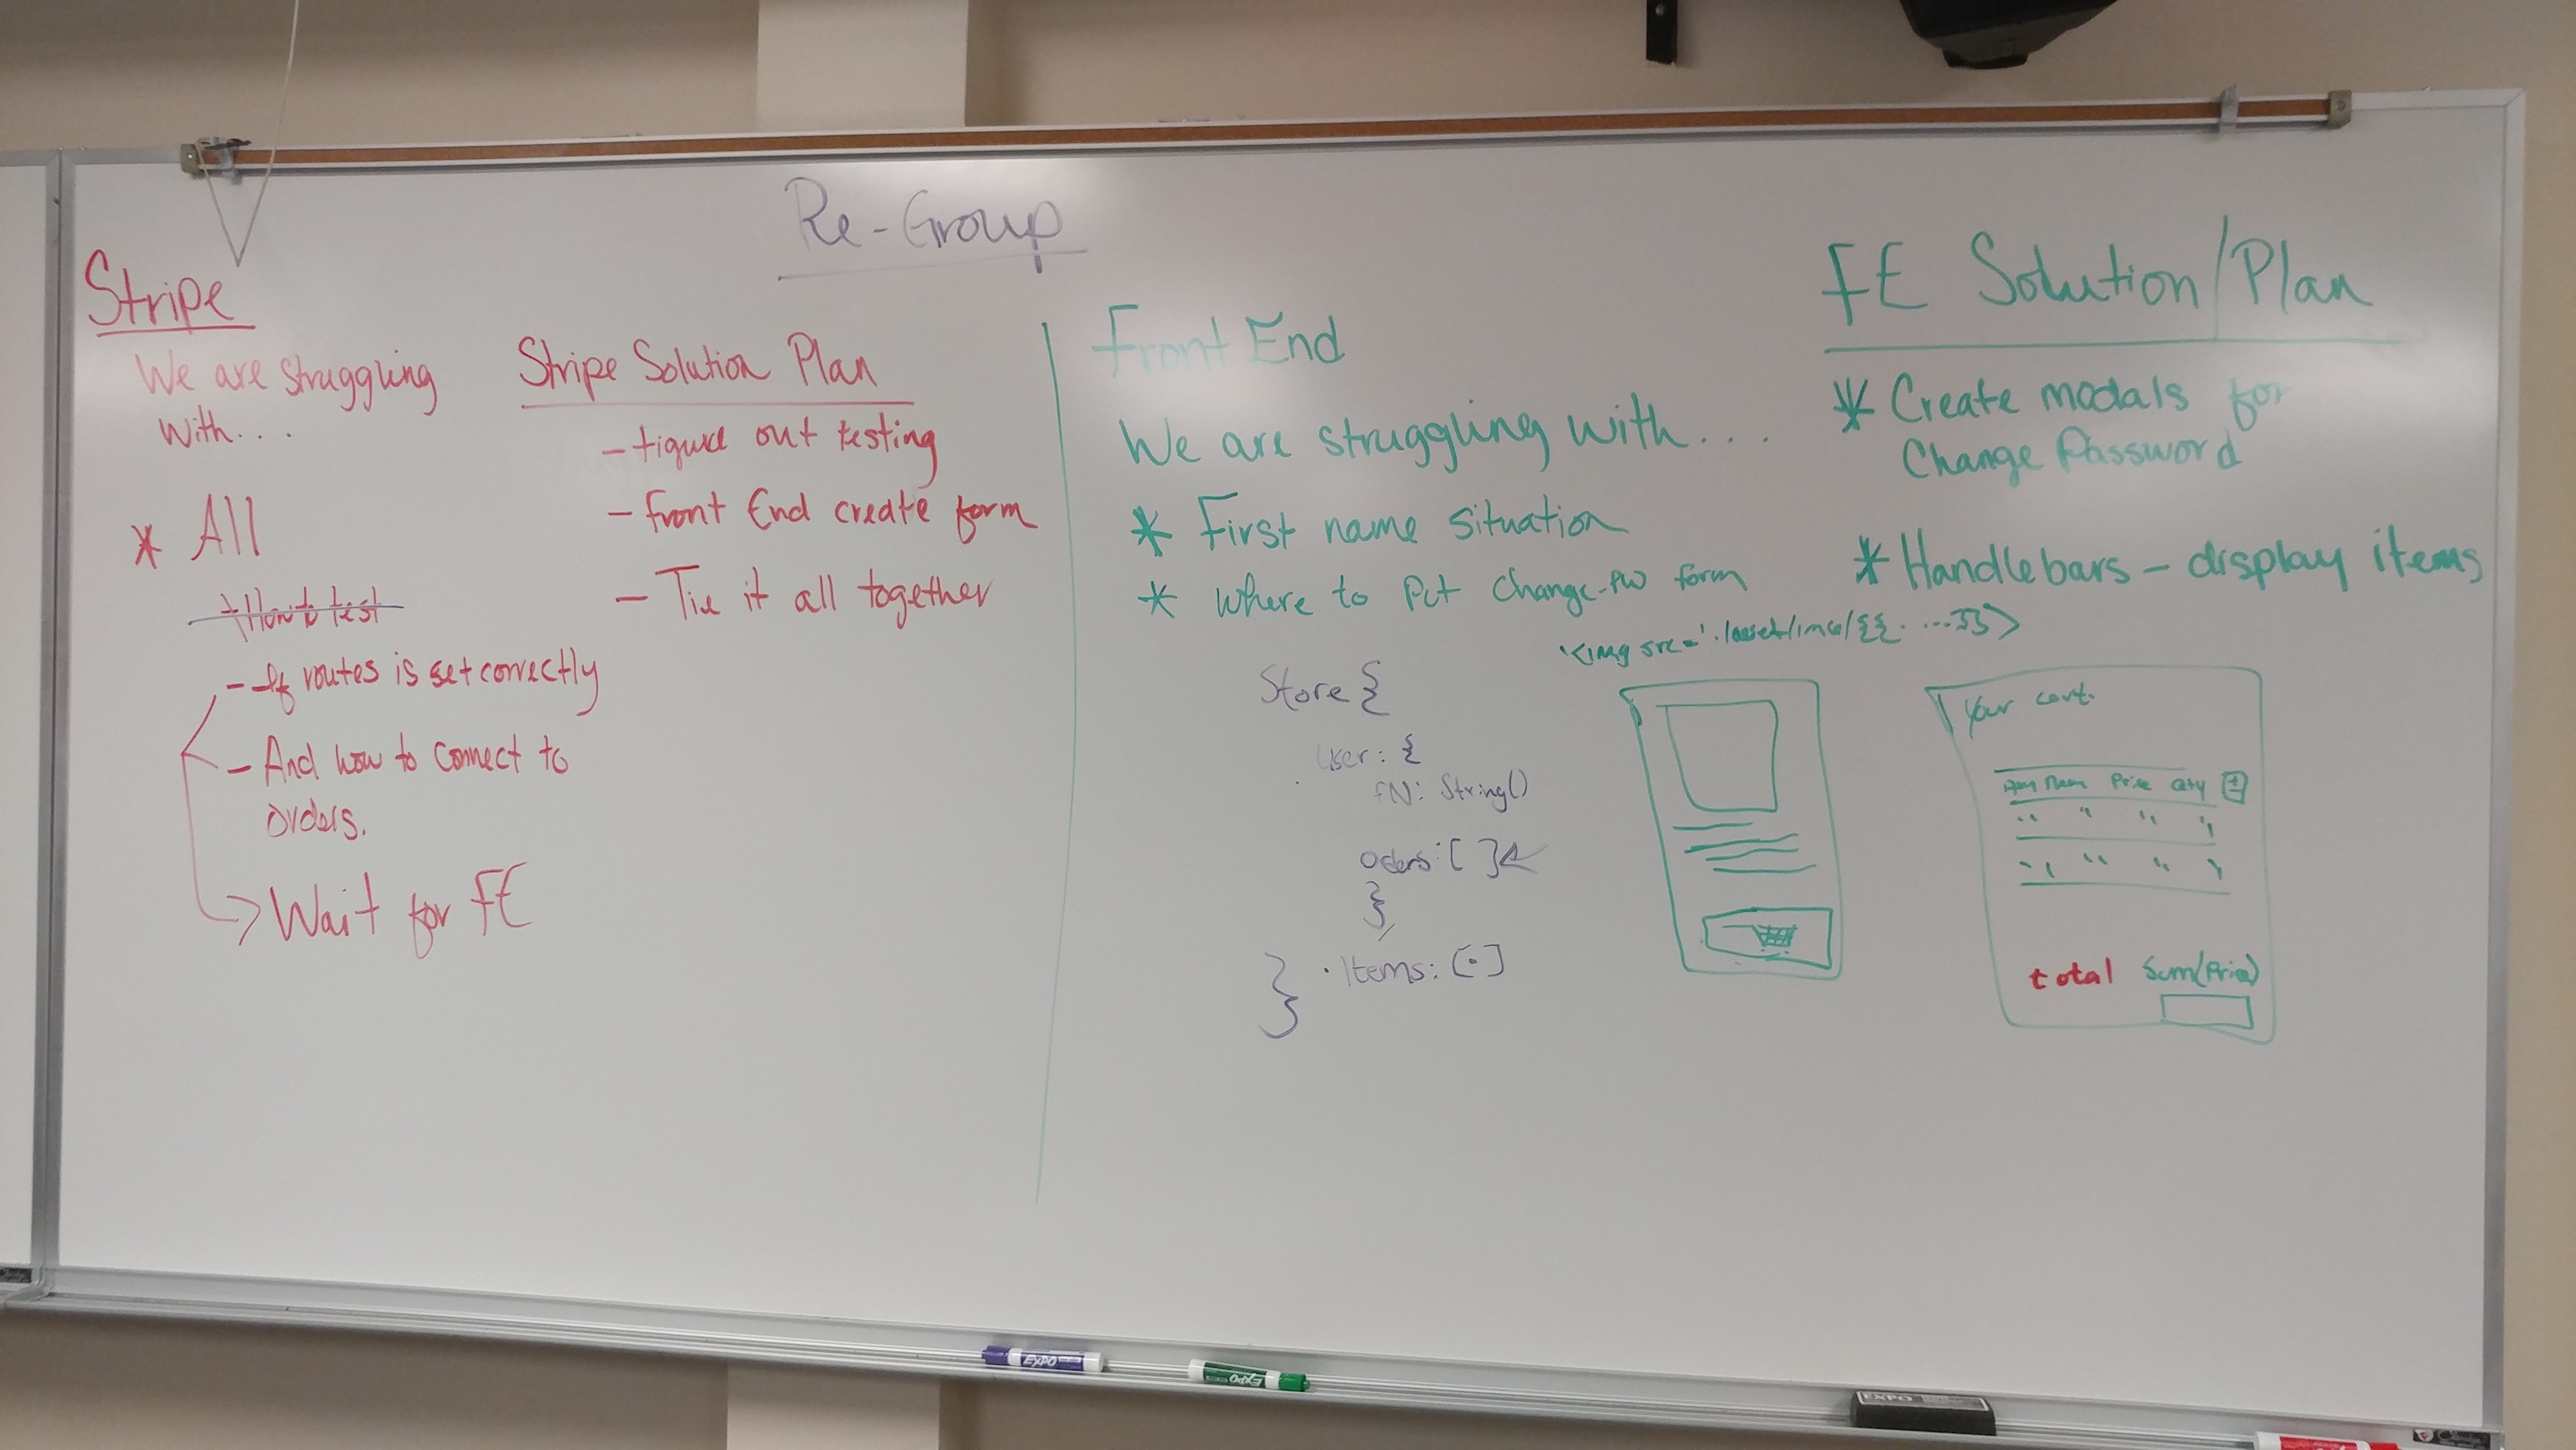 Re-Group
Stripe
We are struggling
with...
* All
How to test
- If routes is set correctly
- And how to connect to
orders.
Wait for FE
Stripe Solution Plan
- figure out testing
- Front End create form
- Tie it all together
Front End
We are struggling with....
* First name situation
* Where to Put Change-PW form
Store {
User: {
fN: String()
Orders: [ ]
},
Items: [ ]
}
FE Solution/Plan
* Create modals for
Change Password
* Handlebars - display items
<img src='./asset/img/{{.....}}>
Your cart.
Name Price Qty
total Sum(Price)
EXPO
EXPO
EXPO